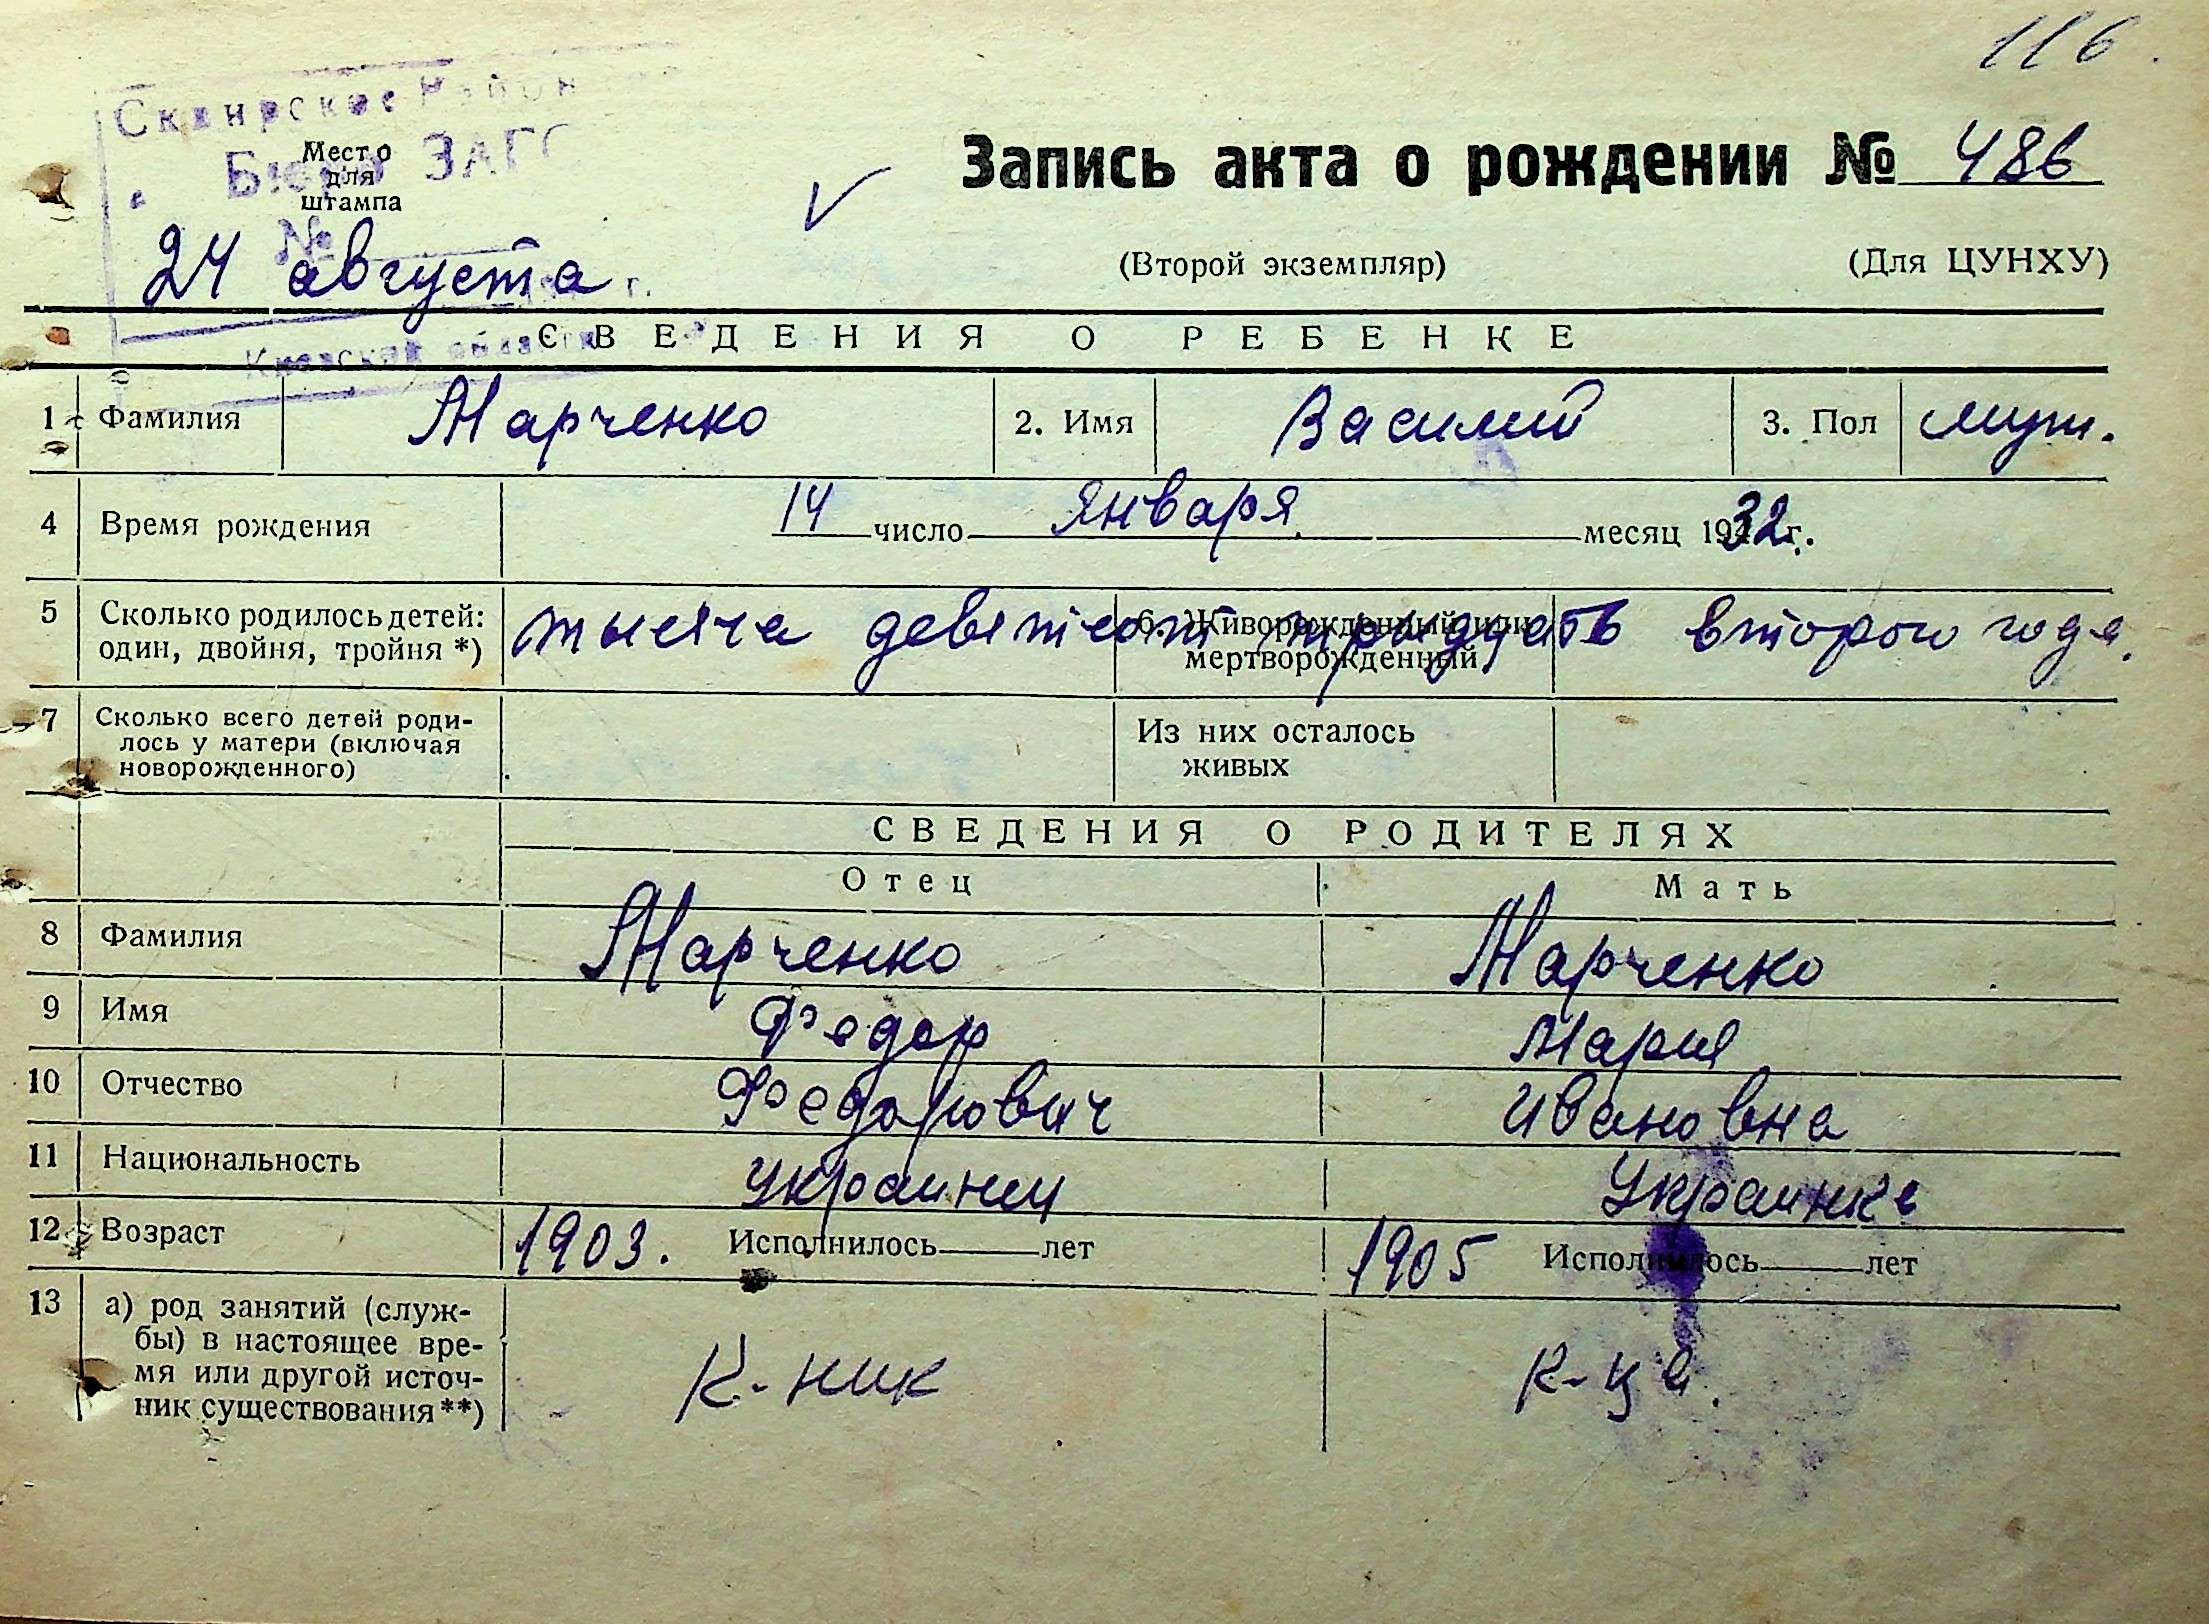 116
Сквирское Район
Бюро ЗАГС
Место
для
штампа
№
24 августа г.
Киевской области
Запись акта о рождении № 486
(Второй экземпляр) (Для ЦУНХУ)
СВЕДЕНИЯ О РЕБЕНКЕ
1 Фамилия Марченко 2. Имя Василий 3. Пол муж.
4 Время рождения 14 число января месяц 1932 г.
5 Сколько родилось детей: один, двойня, тройня *) 6. Живорожденный или мертворожденный
тысяча девятсот тридцать второго года.
7 Сколько всего детей роди-
лось у матери (включая
новорожденного)
Из них осталось
живых
СВЕДЕНИЯ О РОДИТЕЛЯХ
Отец Мать
8 Фамилия Марченко Марченко
9 Имя Федор Мария
10 Отчество Федорович Ивановна
11 Национальность украинец Украинка
12 Возраст 1903. Исполнилось лет 1905 Исполнилось лет
13 а) род занятий (служ-
бы) в настоящее вре-
мя или другой источ-
ник существования**)
К-ник К-ца.